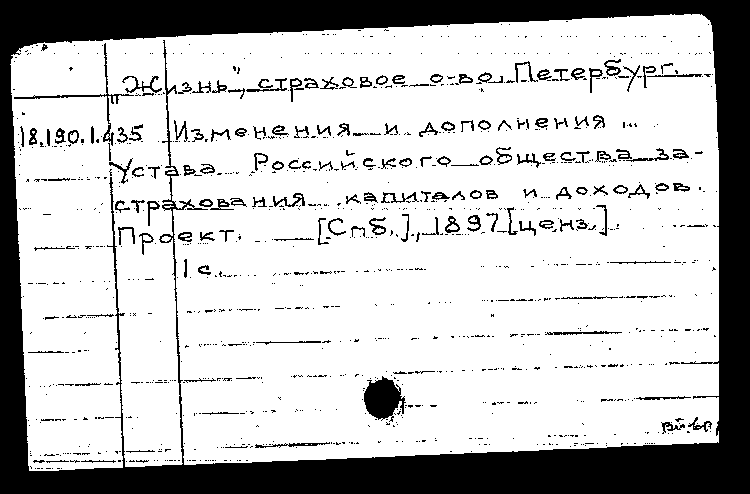 „Жизнь", страховое о-во. Петербург.
18.190.1.435 Изменения и дополнения ...
Устава Российского общества за-
страхования капиталов и доходов.
Проект. [Спб.], 1897 [ценз.].
1 с.